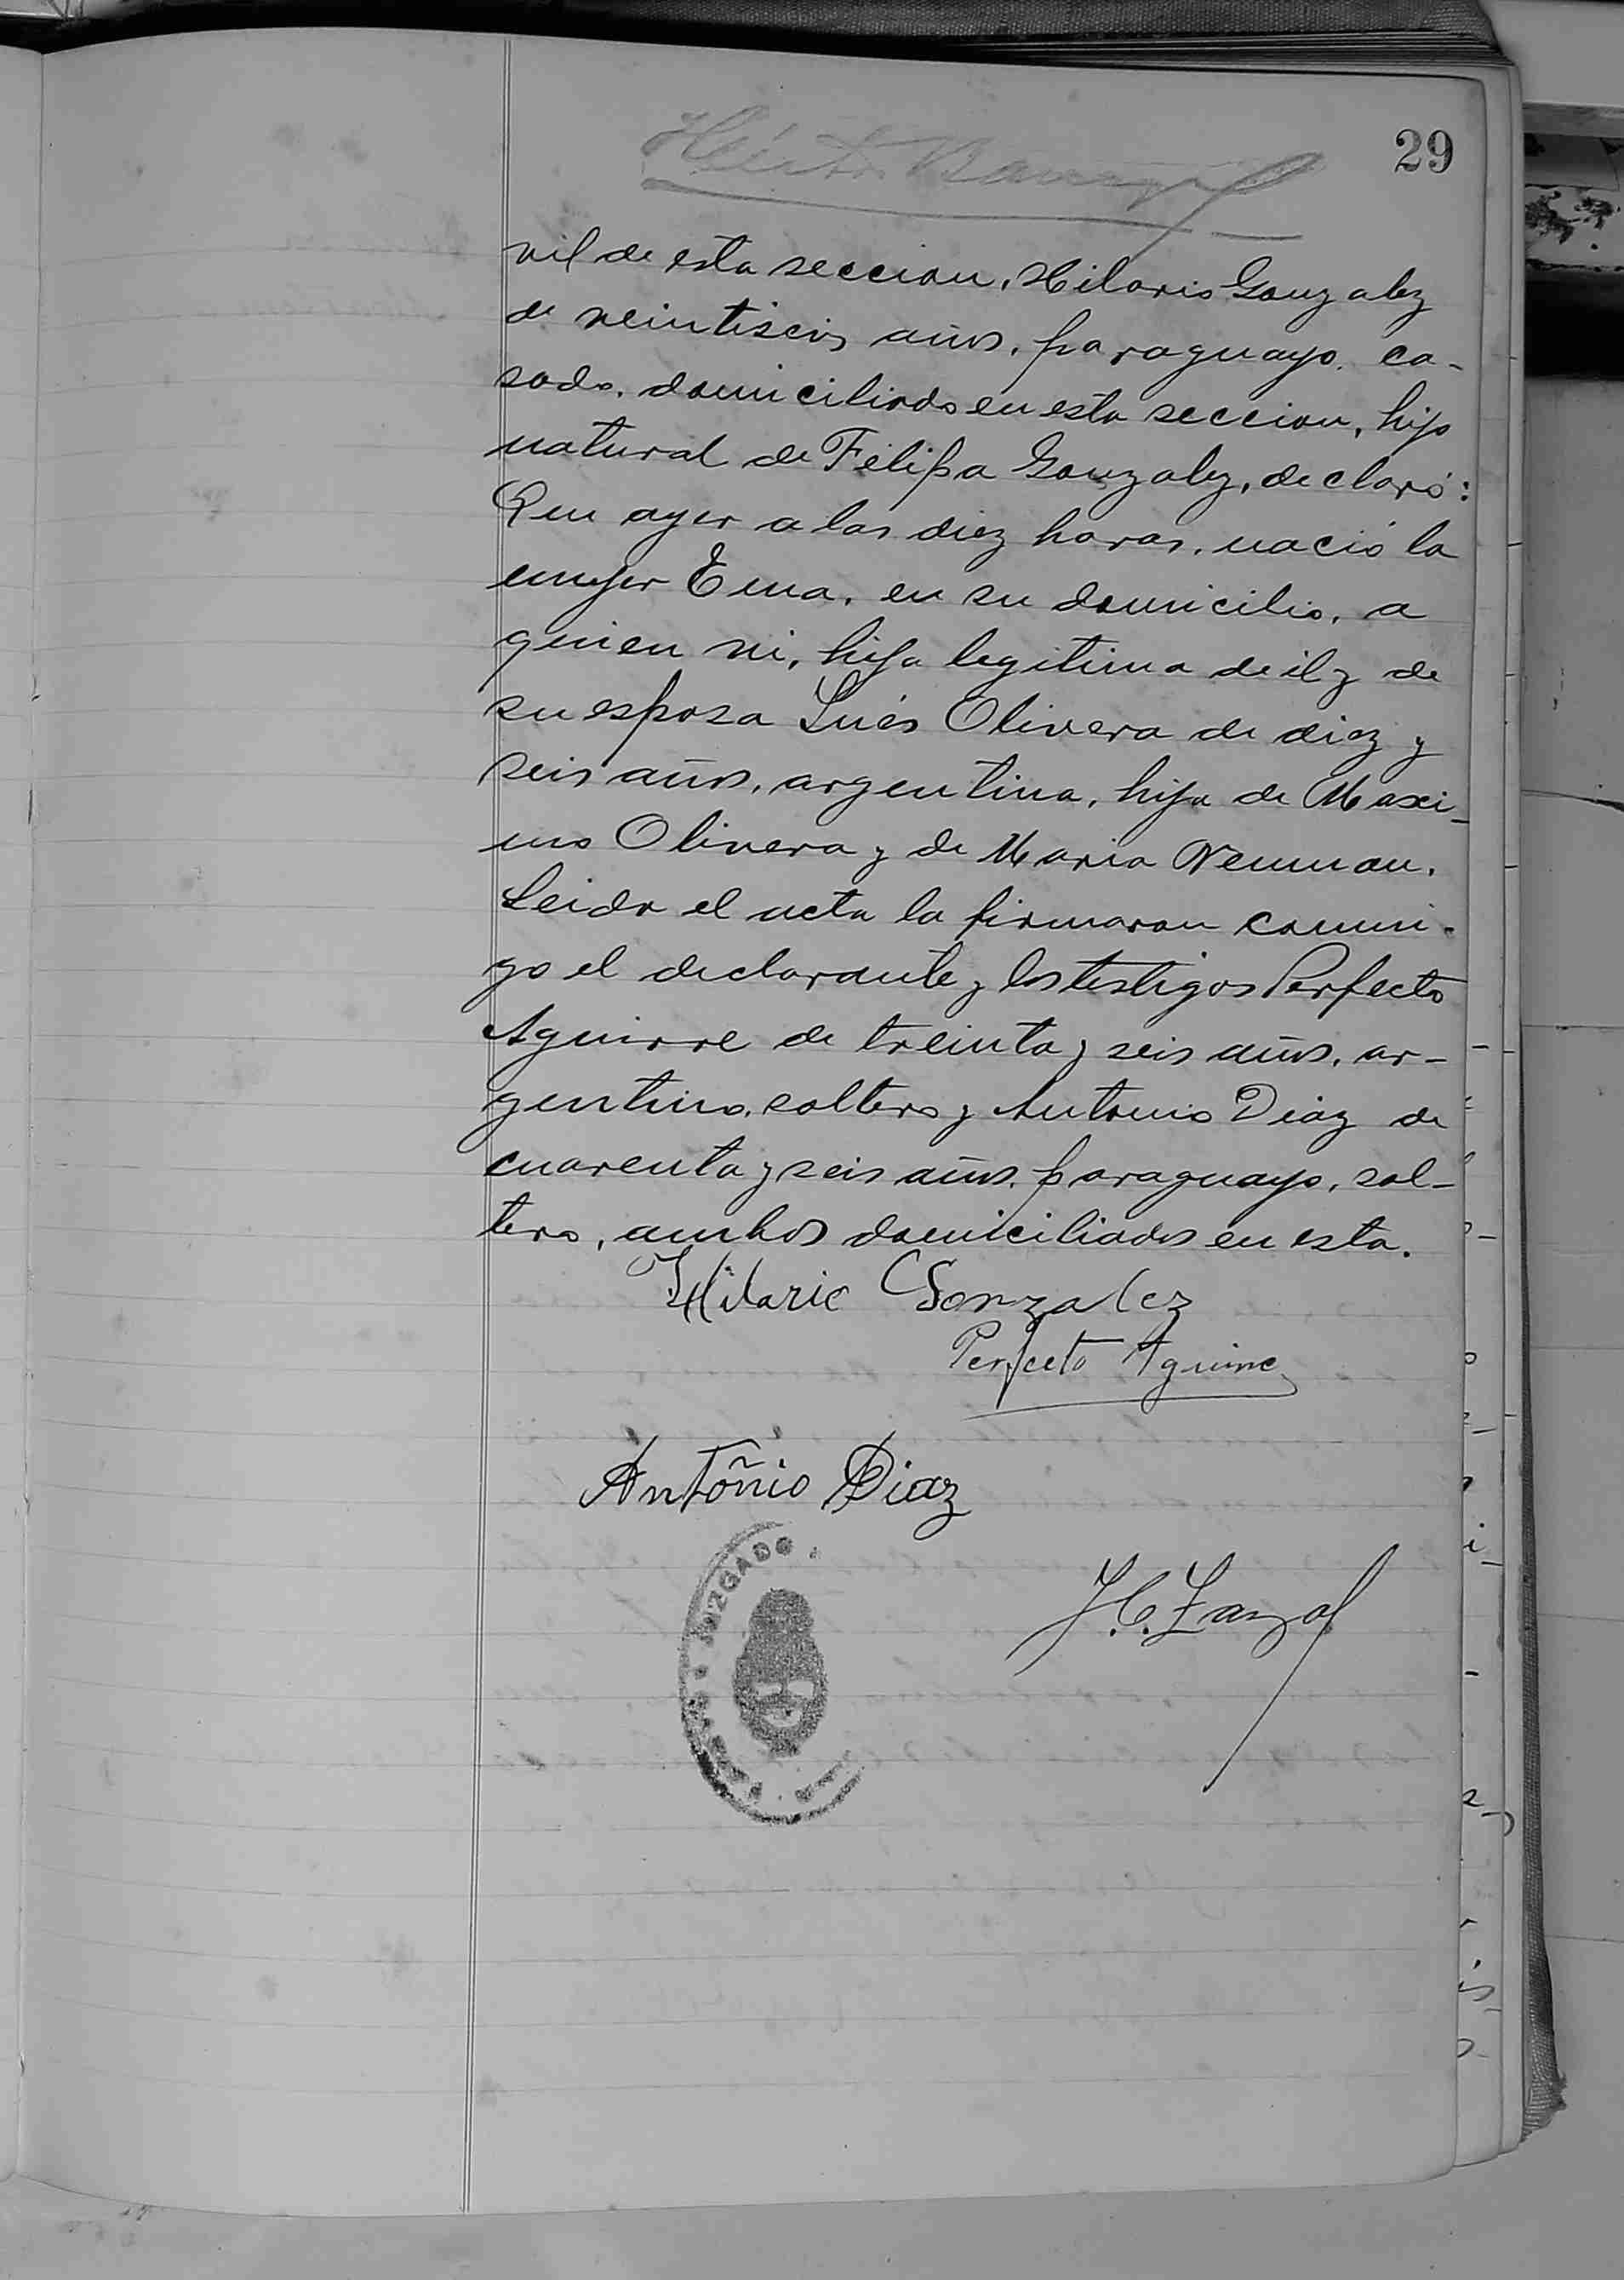 29
Héctor
vil de esta seccion, Hilario Gonzalez
de veintiseis años, paraguayo, ca-
sado, domiciliado en esta seccion, hijo
natural de Felipa Gonzalez, declaró:
Que ayer a las diez horas, nació la
mujer Ema, en su domicilio, a
quien vi, hija legitima de él y de
su esposa Inés Olivera de diez y
seis años, argentina, hija de Maxi-
mo Olivera y de Maria Neuman.
Leida el acta la firmaron conmi-
go el declarante y los testigos Perfecto
Aguirre de treinta y seis años, ar-
gentino, soltero y Antonio Diaz de
cuarenta y seis años, paraguayo, sol-
tero, ambos domiciliados en esta.
Hilario Gonzalez
Perfecto Aguirre
Antõnio Diaz
JUZGADO